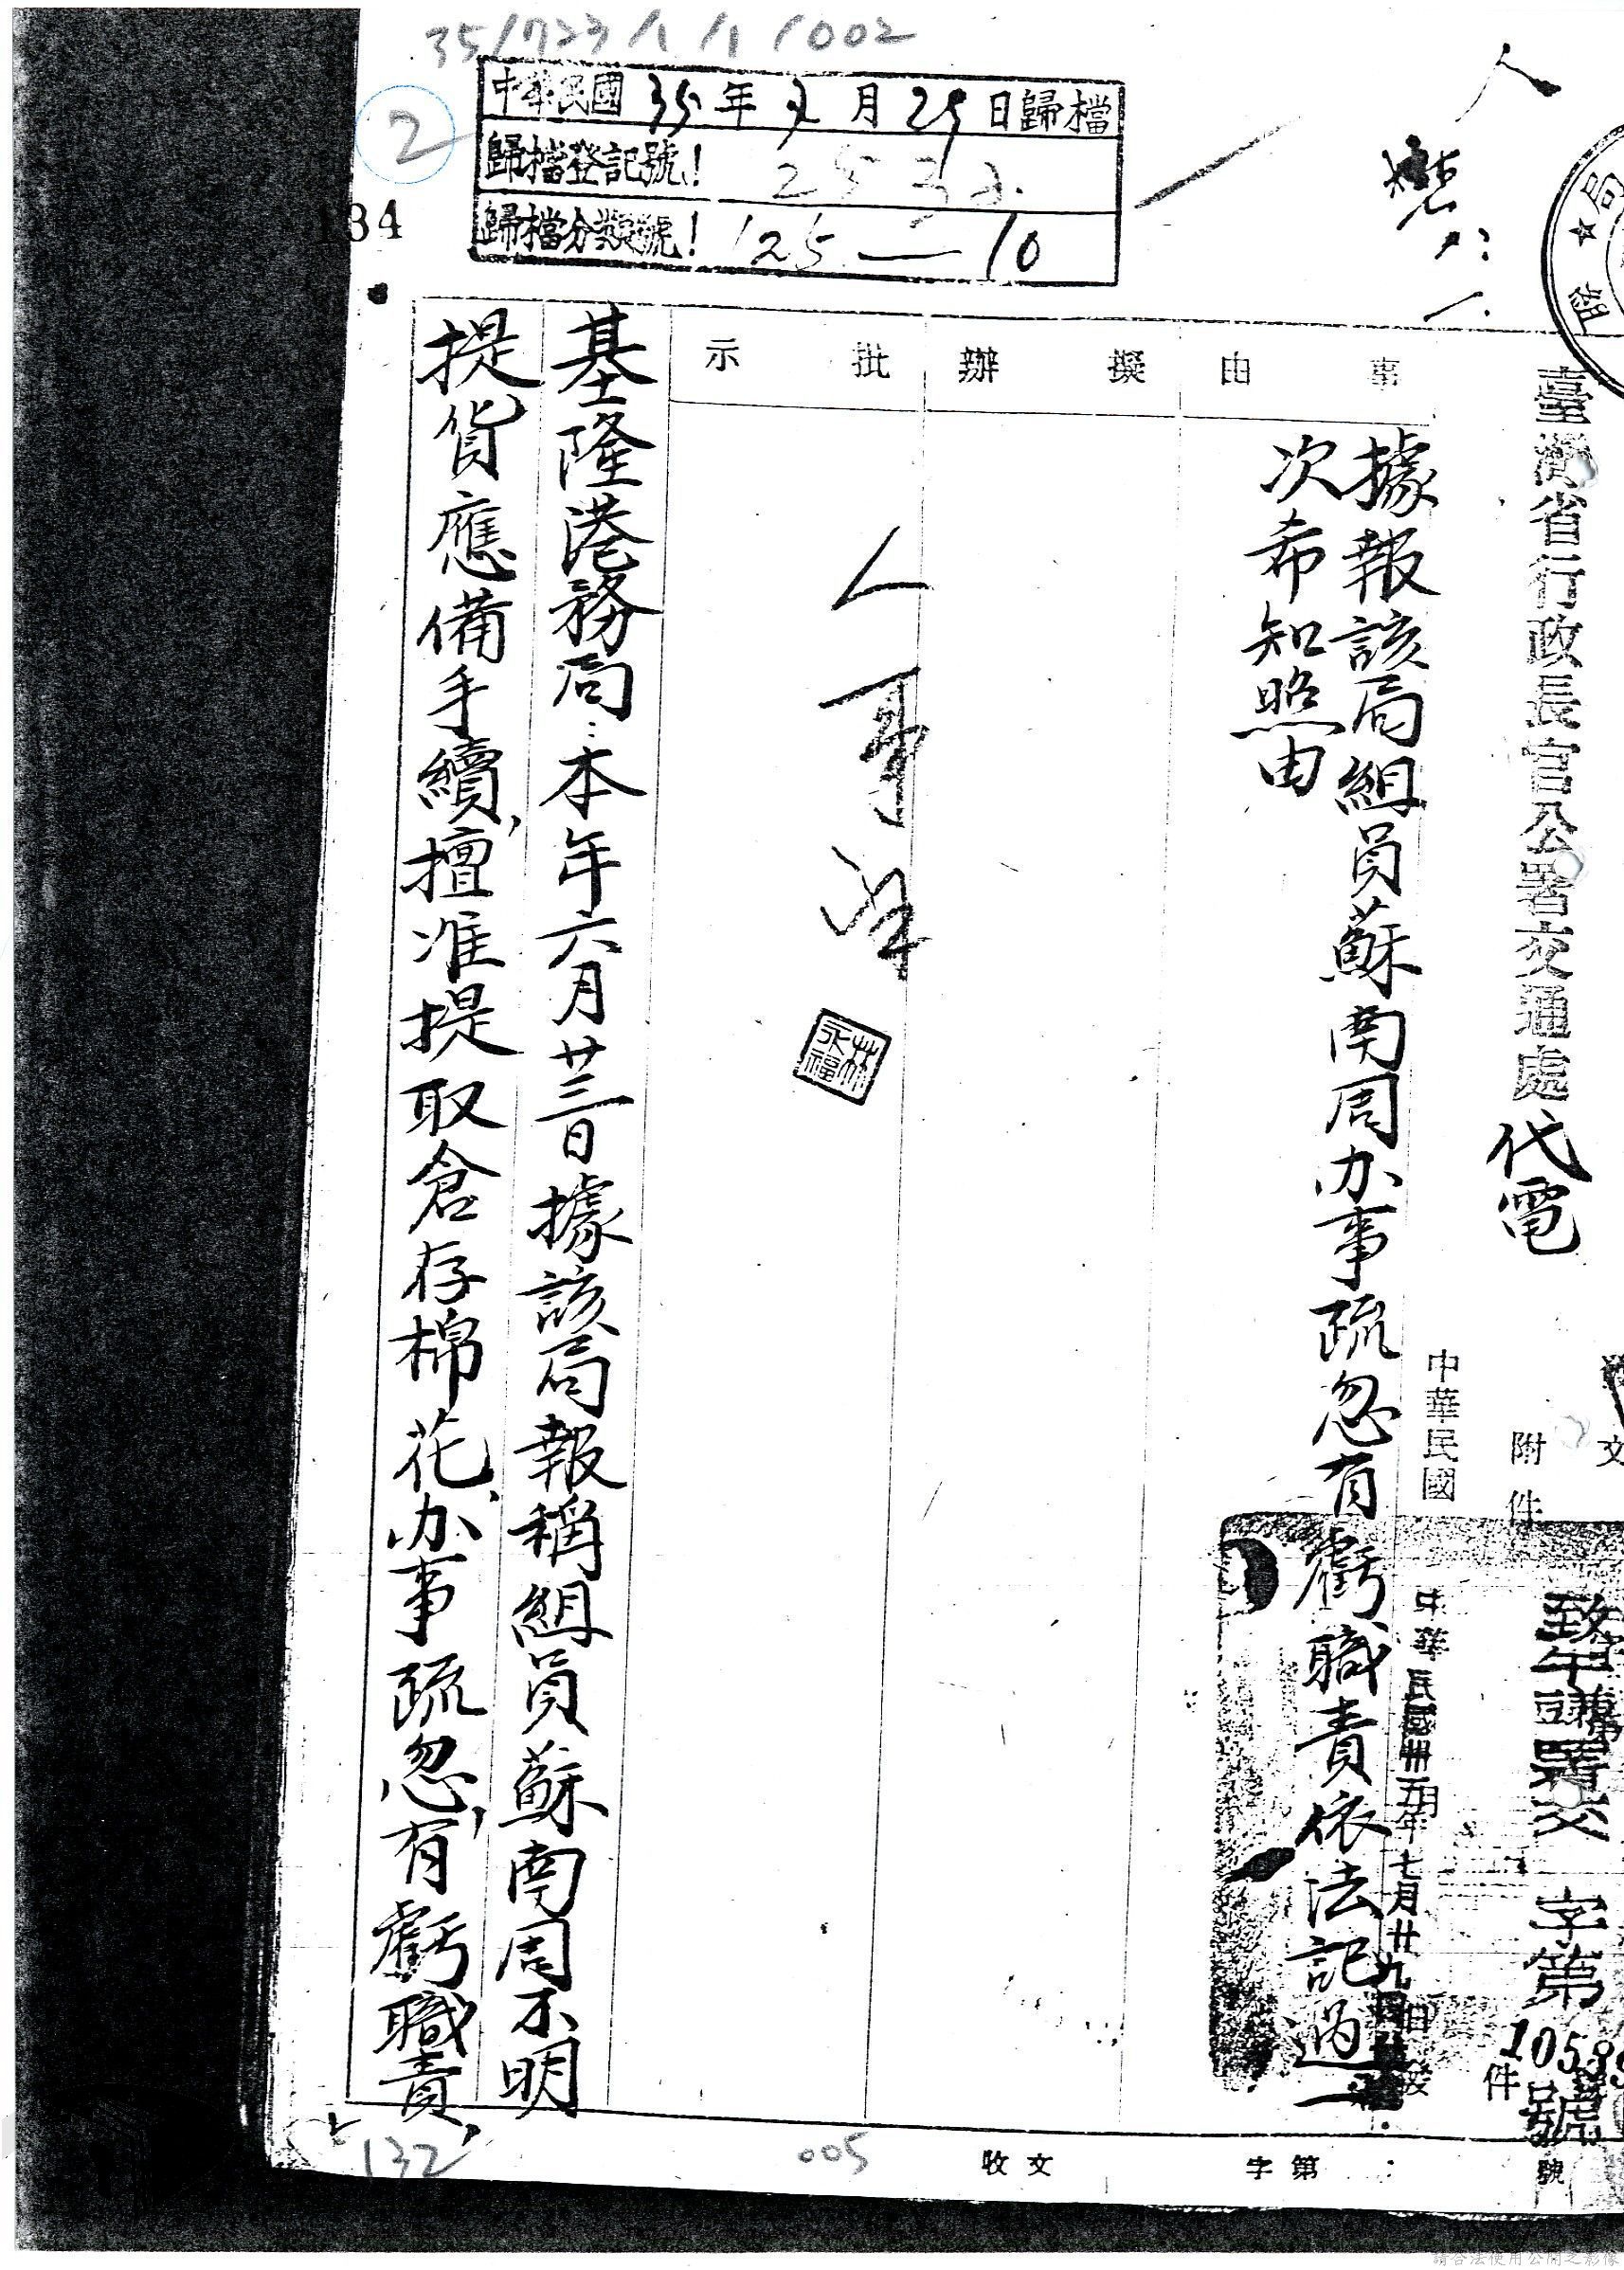 35/723/1/1/002
2
中華民國35年 月29日歸檔
歸檔登記號!
歸檔分類號! 125—10
134
臺灣省行政長官公署交通處代電
附件
中華民國
中華民國卅五年七月廿九日發
致午
署交 字第 號
事由
據報該局組員蘇南周办事疏忽有虧職責依法記過一
次希知照由
擬辦
批示
人事
林永福
基隆港務局:本年六月廿三日據該局報稱組員蘇南周不明
提貨應備手續,擅准提取倉存棉花,办事疏忽,有虧職責,
收文 字第 號
005
132
請合法使用公開之影像